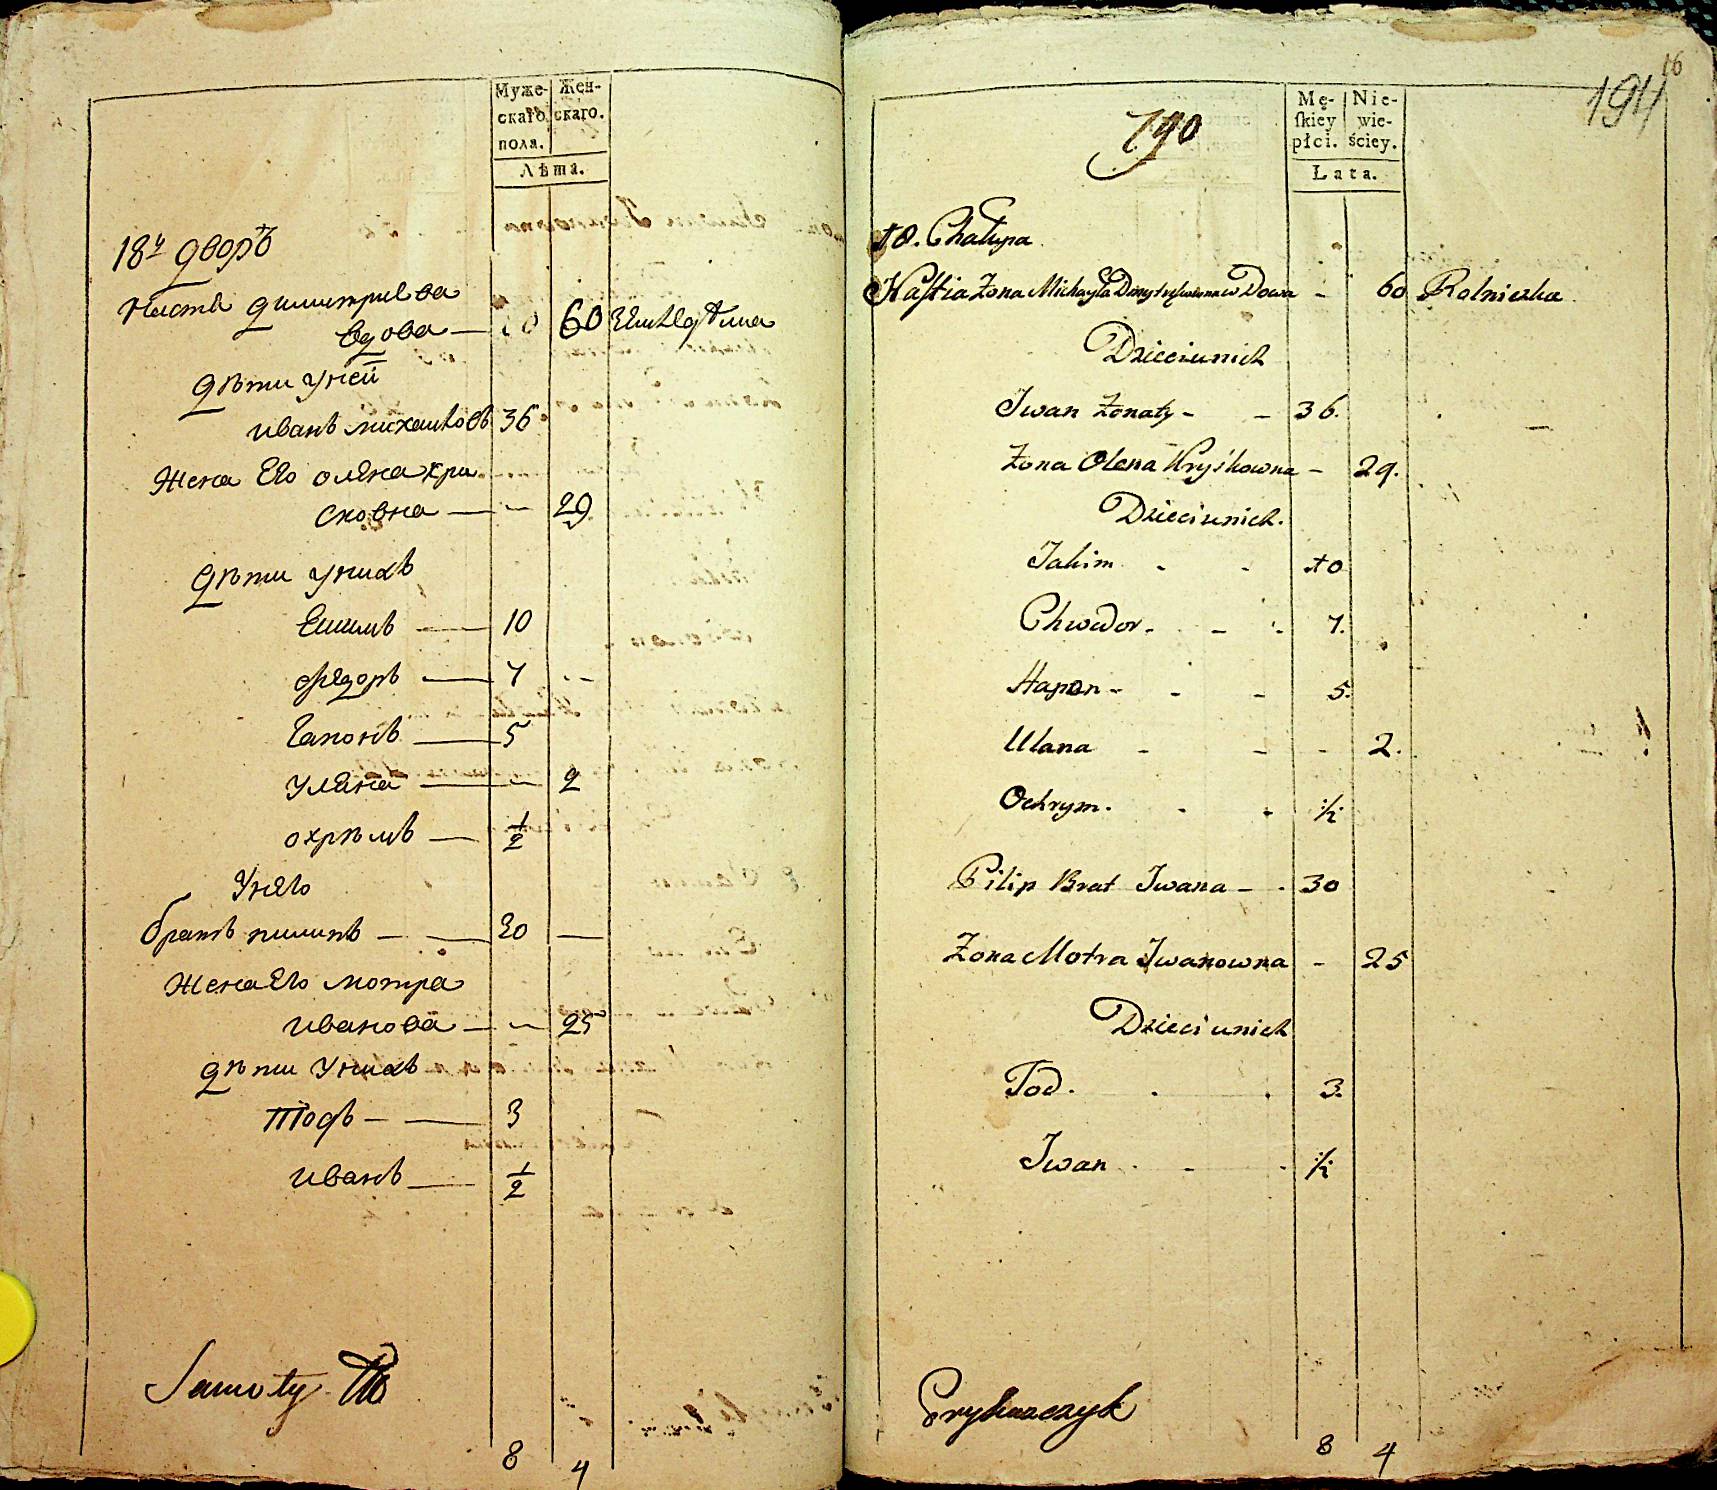 Муже-
скаго
пола.
Жен-
скаго.
Лѣта.
18й дворъ
Настя димитриева
вдова — 60 Земледѣлица
дѣти у ней
иванъ михайловъ 36
жена его олена хри
сковна — 29
дѣти у нихъ
Екимъ — 10
федоръ — 7
Гапонъ — 5
уляна — 2
охрѣмъ — 1/2
У него
братъ пилипъ — 30
жена его мотра
иванова — 25
дѣти у нихъ
тодъ — 3
иванъ — 1/2
8 4
16
194
190
Mę-
skiey
płci.
Nie-
wie-
ściey.
Lata.
18. Chałupa
Nastia Żona Michayła Dmytrychowna wDowa - 60 Rolniczka
Dzieci u nich
Iwan Żonaty - - 36.
Żona Olena Hryśkowna - 29.
Dzieci u nich.
Jakim - - 10
Chwedor - - 7.
Hapon - - 5.
Ulana - - - 2.
Ochrym. . . ½
Pilip Brat Iwana - . 30
Żona Motra Iwanowna - 25
Dzieci u nich
Tod. . . 3.
Iwan . - . ½
8 4